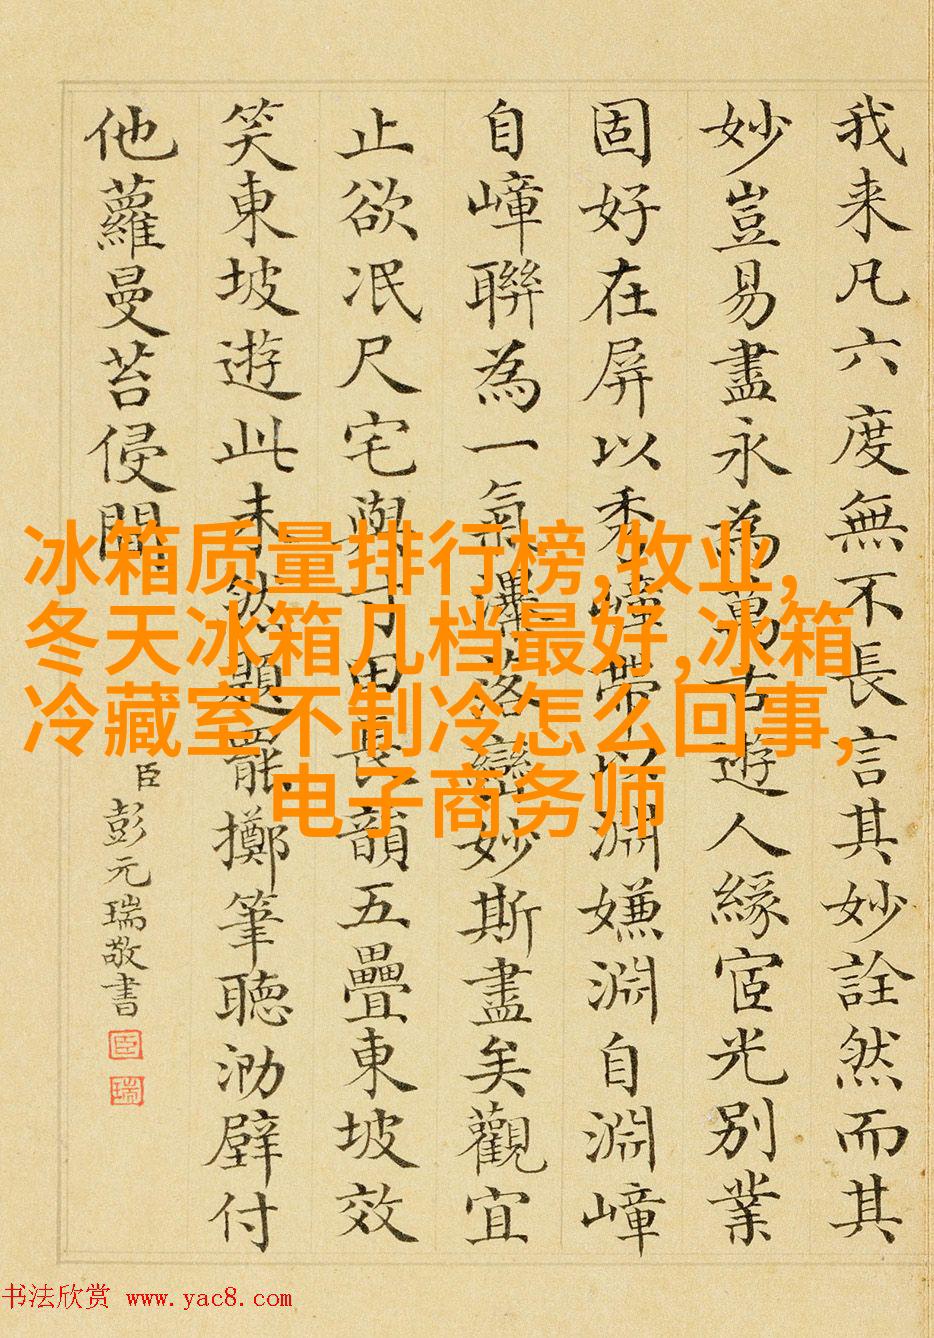 我来凡六度無不長言其妙詮然而其
妙豈易盡永為萬古遊人緣宧光別業
固好在屏以秀嶂帶以淵嫌淵自淵嶂
自嶂聯為一氣巒妙斯盡矣觀宜
止欲泯尺宅與寸田長韻五疊東坡效
笑東坡遊此未然題罷擲筆聽泐壁付
他蘿曼苔侵間
臣彭元瑞敬書
臣
瑞
冰箱质量排行榜,牧业,
冬天冰箱几档最好,冰箱
冷藏室不制冷怎么回事,
电子商务师
书法欣赏 www.yac8.com